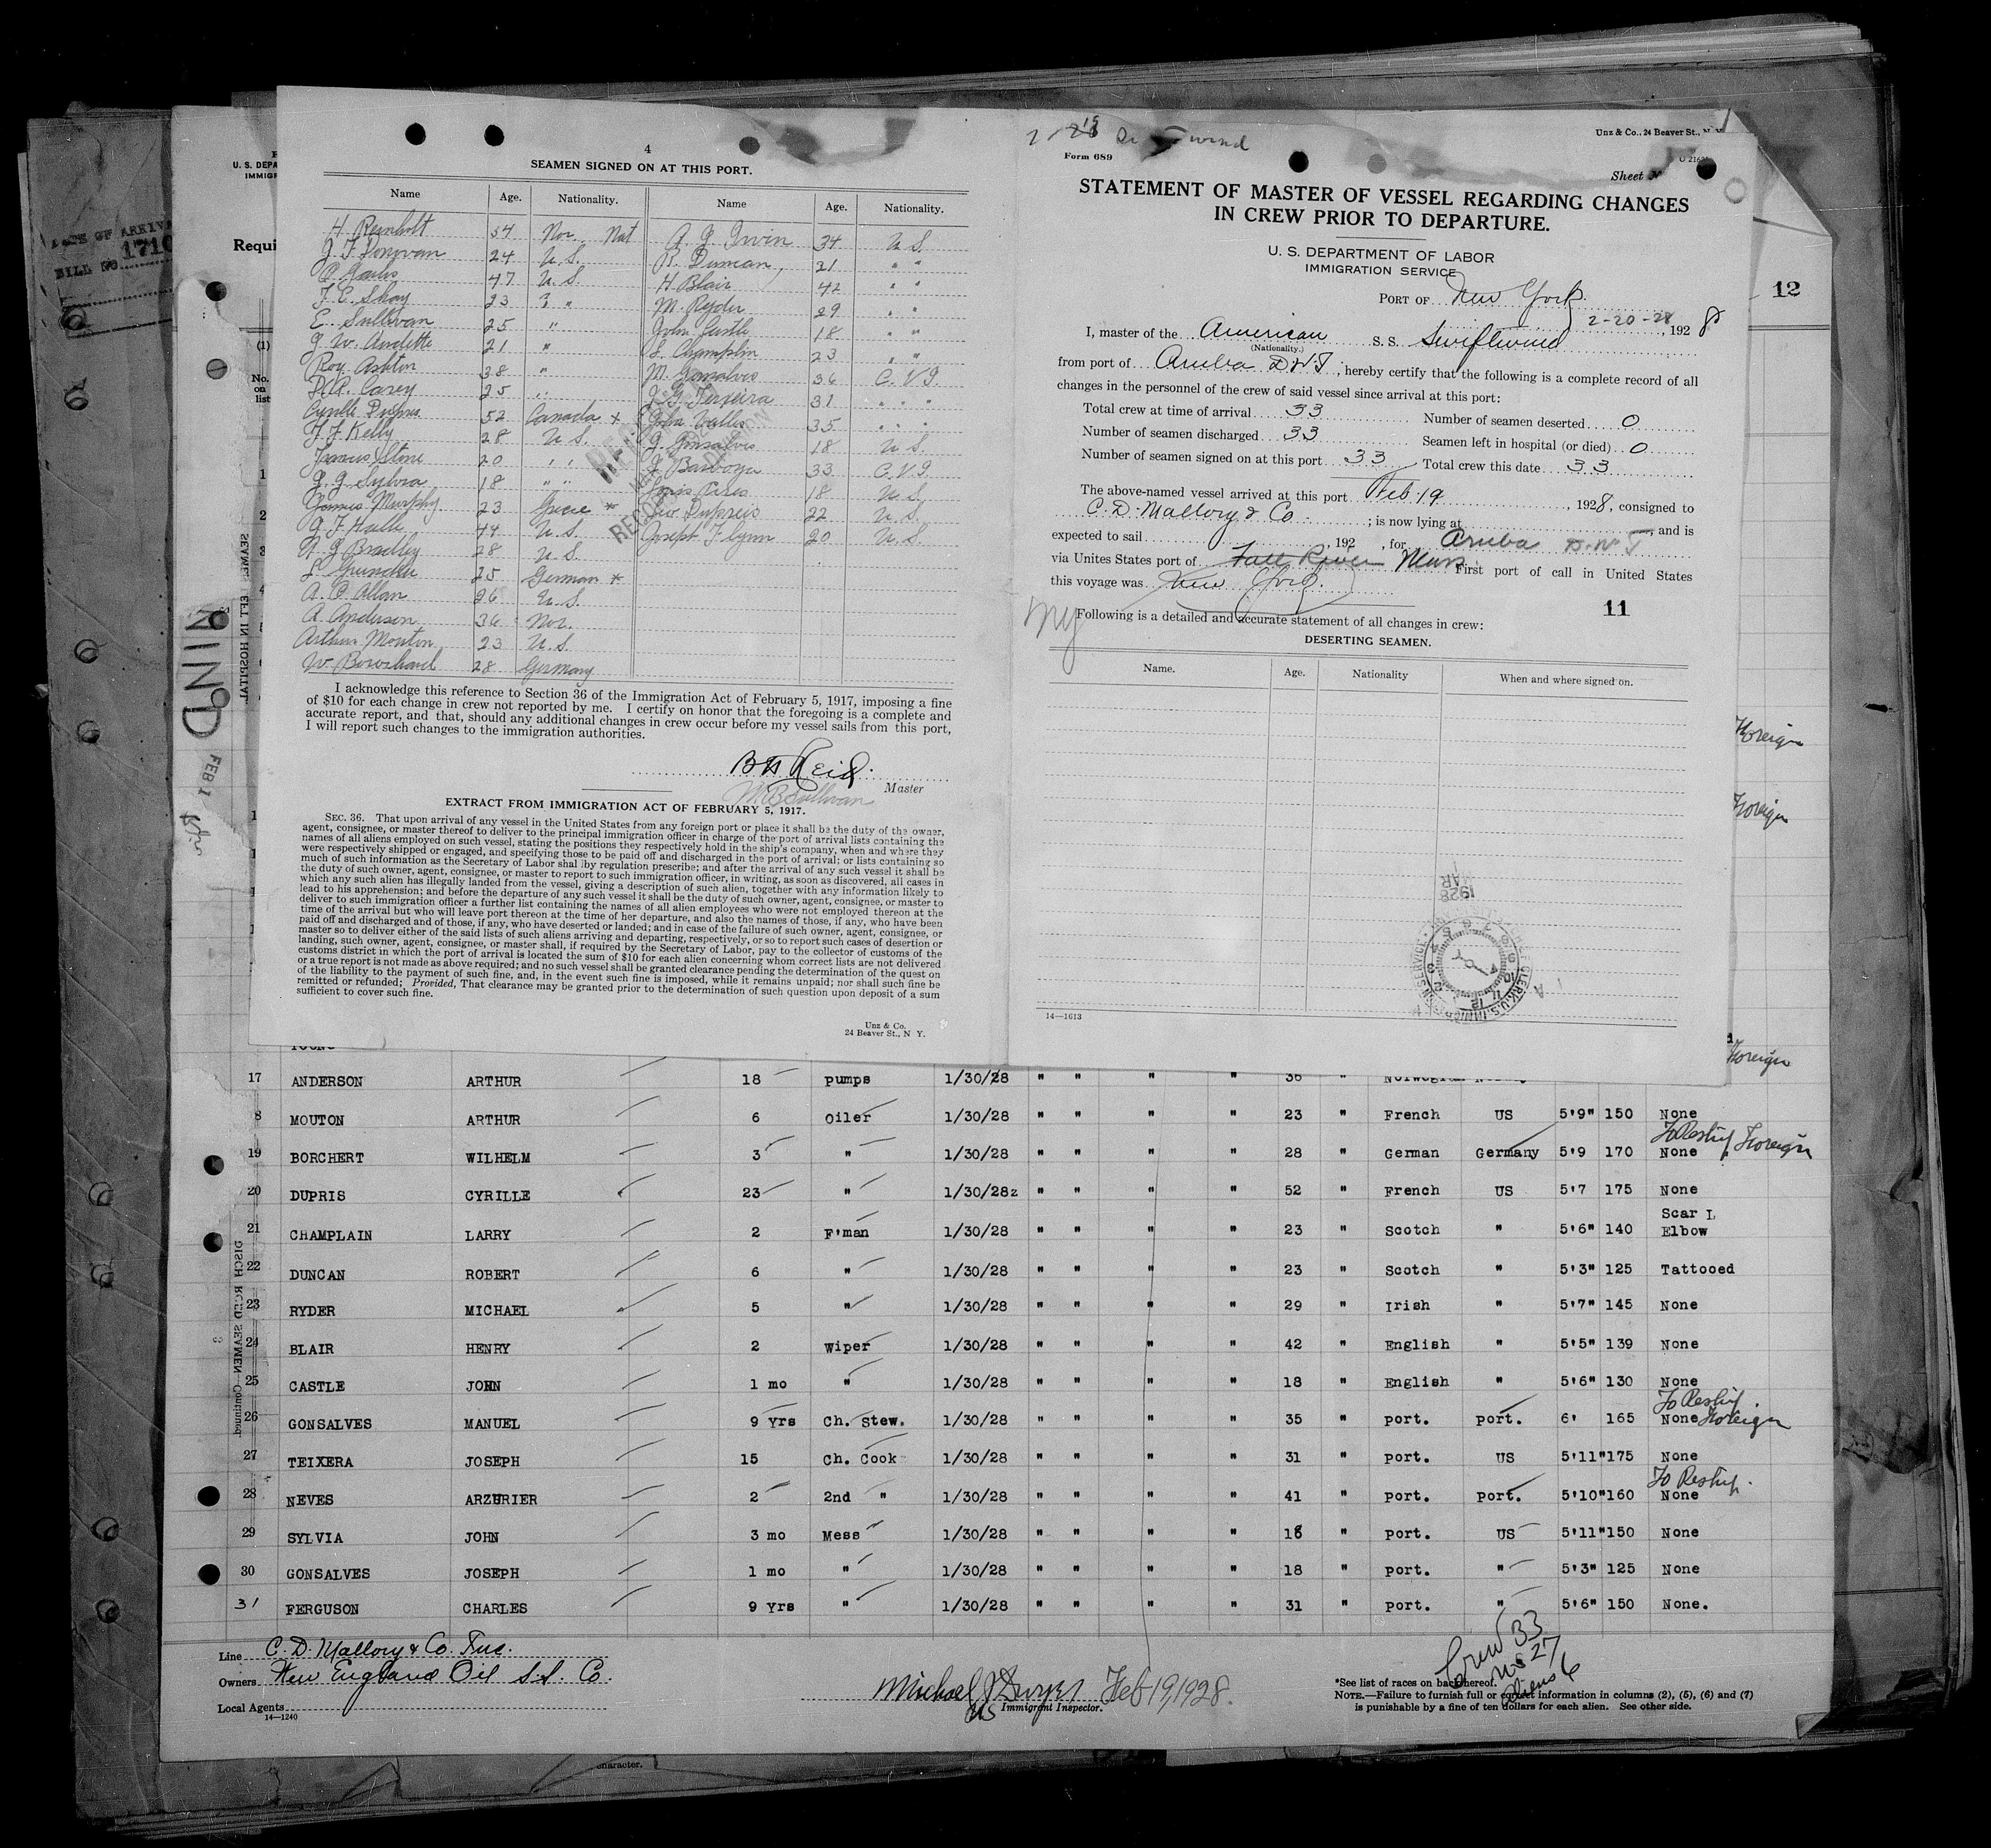 4
SEAMEN SIGNED ON AT THIS PORT.
Name Age. Nationality. Name Age. Nationality.
H Reinholt 54 Nor. Nat A. G. Irvin 34 U S.
J F Donovan 24 U.S. R. Duncan, 21 " "
47 U.S. H Blair 42 " "
F. C. Shay 23 " M. Ryder 29 " "
E. Sullivan 25 " John Castle 18 " "
J. W. Audette 21 " L. Champlin 23 " "
Roy Ashton 38 " M. Gonsalves 36 C. V I.
Carey 25 " J. Texeira 31 " " "
Cyrille Dupris 52 Canada + John 35 " " "
J. F Kelly 28 U S. J. Gonsalves 18 U S.
Francis Stone 20 " " J. Barboza 33 C. V I
J. J. Sylvia 18 " " Louis Pires 18 U S.
James Murphy 23 Greece * Leo Dupreis 22 U.S.
44 U.S. Joseph Flynn 20 U.S.
Bradley 28 U.S.
25 German *
A. C Allan 26 U.S.
A. Anderson 36 Nor.
Arthur Mouton 23 U.S.
W. 28 Germany
I acknowledge this reference to Section 36 of the Immigration Act of February 5, 1917, imposing a fine
of $10 for each change in crew not reported by me. I certify on honor that the foregoing is a complete and
accurate report, and that, should any additional changes in crew occur before my vessel sails from this port,
I will report such changes to the immigration authorities.
Reid.
Master
M B Sullivan
EXTRACT FROM IMMIGRATION ACT OF FEBRUARY 5, 1917.
SEC. 36. That upon arrival of any vessel in the United States from any foreign port or place it shall be the duty of the owner,
agent, consignee, or master thereof to deliver to the principal immigration officer in charge of the port of arrival lists containing the
names of all aliens employed on such vessel, stating the positions they respectively hold in the ship's company, when and where they
were respectively shipped or engaged, and specifying those to be paid off and discharged in the port of arrival; or lists containing so
much of such information as the Secretary of Labor shal lby regulation prescribe; and after the arrival of any such vessel it shall be
the duty of such owner, agent, consignee, or master to report to such immigration officer, in writing, as soon as discovered, all cases in
which any such alien has illegally landed from the vessel, giving a description of such alien, together with any information likely to
lead to his apprehension; and before the departure of any such vessel it shall be the duty of such owner, agent, consignee, or master to
deliver to such immigration officer a further list containing the names of all alien employees who were not employed thereon at the
time of the arrival but who will leave port thereon at the time of her departure, and also the names of those, if any, who have been
paid off and discharged and of those, if any, who have deserted or landed; and in case of the failure of such owner, agent, consignee, or
master so to deliver either of the said lists of such aliens arriving and departing, respectively, or so to report such cases of desertion or
landing, such owner, agent, consignee, or master shall, if required by the Secretary of Labor, pay to the collector of customs of the
customs district in which the port of arrival is located the sum of $10 for each alien concerning whom correct lists are not delivered
or a true report is not made as above required; and no such vessel shall be granted clearance pending the determination of the quest on
of the liability to the payment of such fine, and, in the event such fine is imposed, while it remains unpaid; nor shall such fine be
remitted or refunded; Provided, That clearance may be granted prior to the determination of such question upon deposit of a sum
sufficient to cover such fine.
Unz & Co.
24 Beaver St., N Y.
Unz & Co., 24 Beaver St., N. Y.
Form 689
Sheet N
STATEMENT OF MASTER OF VESSEL REGARDING CHANGES
IN CREW PRIOR TO DEPARTURE.
U. S. DEPARTMENT OF LABOR
IMMIGRATION SERVICE
PORT OF New York
2-20-28, 1928
I, master of the American S. S. Swiftwind
(Nationality.)
from port of Aruba DWI; hereby certify that the following is a complete record of all
changes in the personnel of the crew of said vessel since arrival at this port:
Total crew at time of arrival 33 Number of seamen deserted 0
Number of seamen discharged 33 Seamen left in hospital (or died) 0
Number of seamen signed on at this port 33 Total crew this date 33
The above-named vessel arrived at this port Feb 19, 1928, consigned to
C. D. Mallory & Co; is now lying at, and is
expected to sail, 192, for Aruba D. W I
via Unites States port of Fall River Mass First port of call in United States
this voyage was New York.
11
Following is a detailed and accurate statement of all changes in crew:
NY
DESERTING SEAMEN.
Name. Age. Nationality When and where signed on.
MAR
1928
14—1613
12
Foreign
Foreign
Foreign
DATE OF ARRIVA
BILL NO. 1710
U. S. DEPA
IMMIGR
Requi
(1)
No.
on
list
WIND
FEB 1
SEAMEN LEFT IN HOSPITAL
DISCHARGED SEAMEN—Continued.
17 ANDERSON ARTHUR 18 pumps 1/30/28 " " " " 36 "
8 MOUTON ARTHUR 6 Oiler 1/30/28 " " " " 23 " French US 5'9" 150 None
19 BORCHERT WILHELM 3 " 1/30/28 " " " " 28 " German Germany 5'9 170 None To Reship Foreign
20 DUPRIS CYRILLE 23 " 1/30/28z " " " " 52 " French US 5'7 175 None
21 CHAMPLAIN LARRY 2 F'man 1/30/28 " " " " 23 " Scotch " 5'6" 140 Scar L Elbow
22 DUNCAN ROBERT 6 " 1/30/28 " " " " 23 " Scotch " 5'3" 125 Tattooed
23 RYDER MICHAEL 5 " 1/30/28 " " " " 29 " Irish " 5'7" 145 None
24 BLAIR HENRY 2 Wiper 1/30/28 " " " " 42 " English " 5'5" 139 None
25 CASTLE JOHN 1 mo " 1/30/28 " " " " 18 " English " 5'6" 130 None
26 GONSALVES MANUEL 9 Yrs Ch. Stew. 1/30/28 " " " " 35 " port. port. 6' 165 None To Reship Foreign
27 TEIXERA JOSEPH 15 Ch. Cook 1/30/28 " " " " 31 " port. US 5'11" 175 None
28 NEVES ARZURIER 2 2nd " 1/30/28 " " " " 41 " port. port. 5'10" 160 None To Reship.
29 SYLVIA JOHN 3 mo Mess 1/30/28 " " " " 18 " port. US 5'11" 150 None
30 GONSALVES JOSEPH 1 mo " 1/30/28 " " " " 18 " port. " 5'3" 125 None
31 FERGUSON CHARLES 9 Yrs " 1/30/28 " " " " 31 " port. " 5'6" 150 None.
Line C. D. Mallory & Co. Inc.
Owners New England Oil S.S. Co.
Local Agents
14—1240
Michael J Dwyer Feb 19, 1928.
US Immigrant Inspector.
Crew 33
US 27
Aliens 6
*See list of races on back hereof.
NOTE.—Failure to furnish full or correct information in columns (2), (5), (6) and (7)
is punishable by a fine of ten dollars for each alien. See other side.
character.